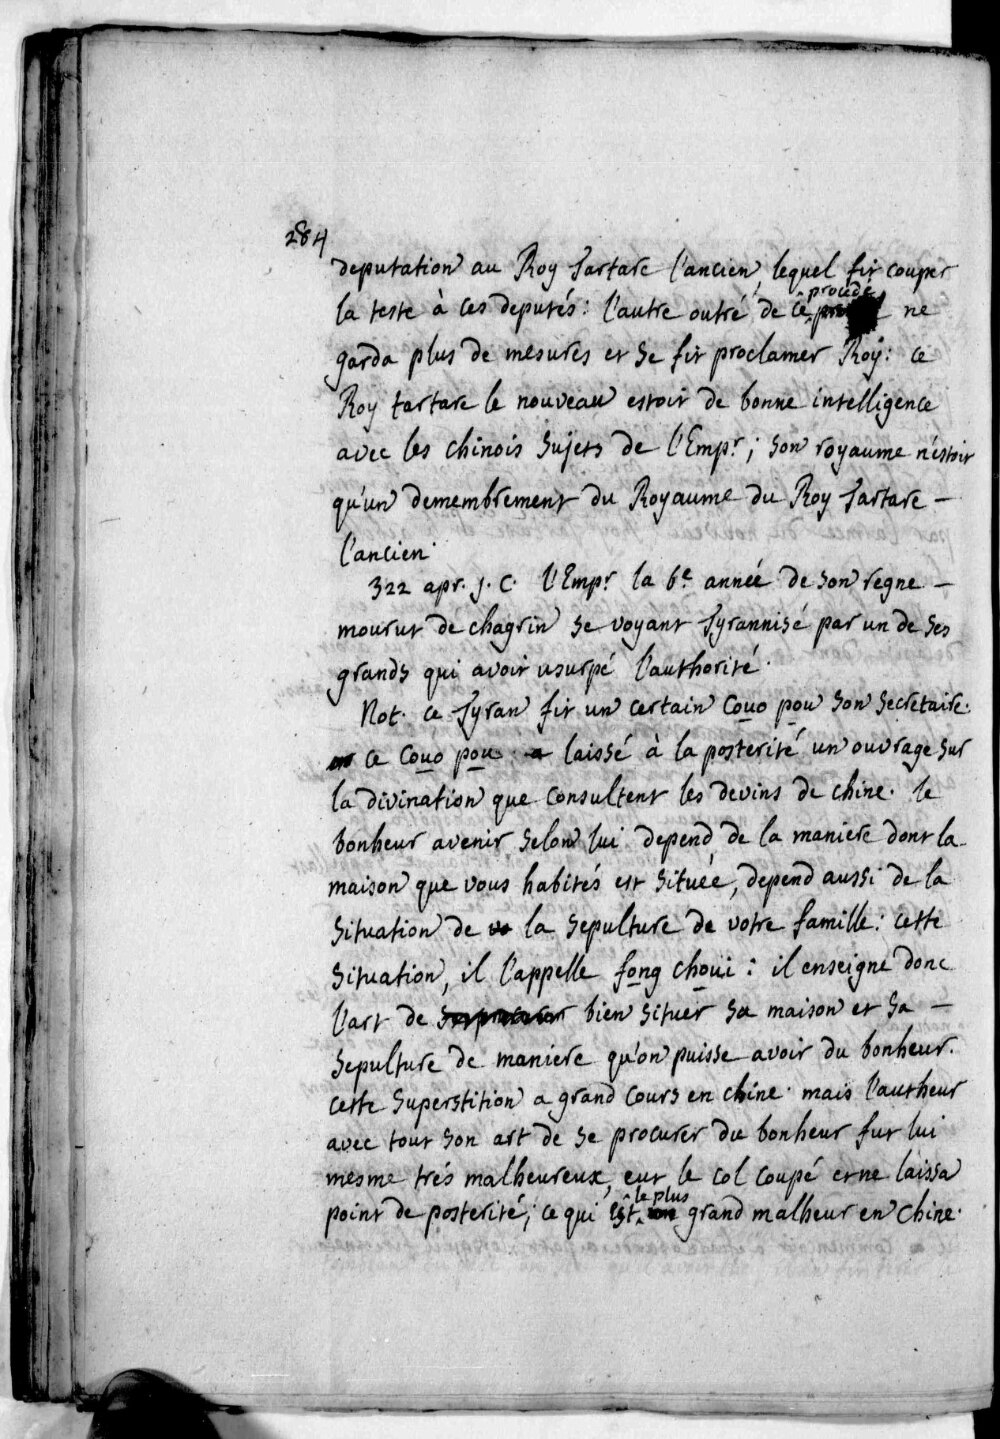 284
deputation au Roy tartare l'ancien, lequel fit couper
la teste à ces deputés: l'autre outré de ce procédé ne
garda plus de mesures et se fit proclamer Roy: ce
Roy tartare le nouveau estoit de bonne intelligence
avec les chinois sujets de l'Empr; son royaume n'estoit
qu'un demembrement du Royaume du Roy tartare –
l'ancien.
322 apr. j. C. l'Empr la 6e année de son regne –
mourut de chagrin se voyant tyrannisé par un de ses
grands qui avoit usurpé l'authorité.
Not. ce tyran fit un certain Couo pou son secretaire.
ce Couo pou a laissé à la posterité un ouvrage sur
la divination que consultent les devins de chine. le
bonheur avenir, selon lui depend de la maniere dont la
maison que vous habités est située, depend aussi de la
situation de la sepulture de votre famille: cette
situation, il l'appelle fong choui: il enseigne donc
l'art de bien situer sa maison et sa –
sepulture de maniere qu'on puisse avoir du bonheur.
cette superstition a grand cours en chine. mais l'autheur
avec tout son art de se procurer du bonheur fut lui
mesme trés malheureux, eut le col coupé et ne laissa
point de posterité; ce qui est le plus grand malheur en chine.